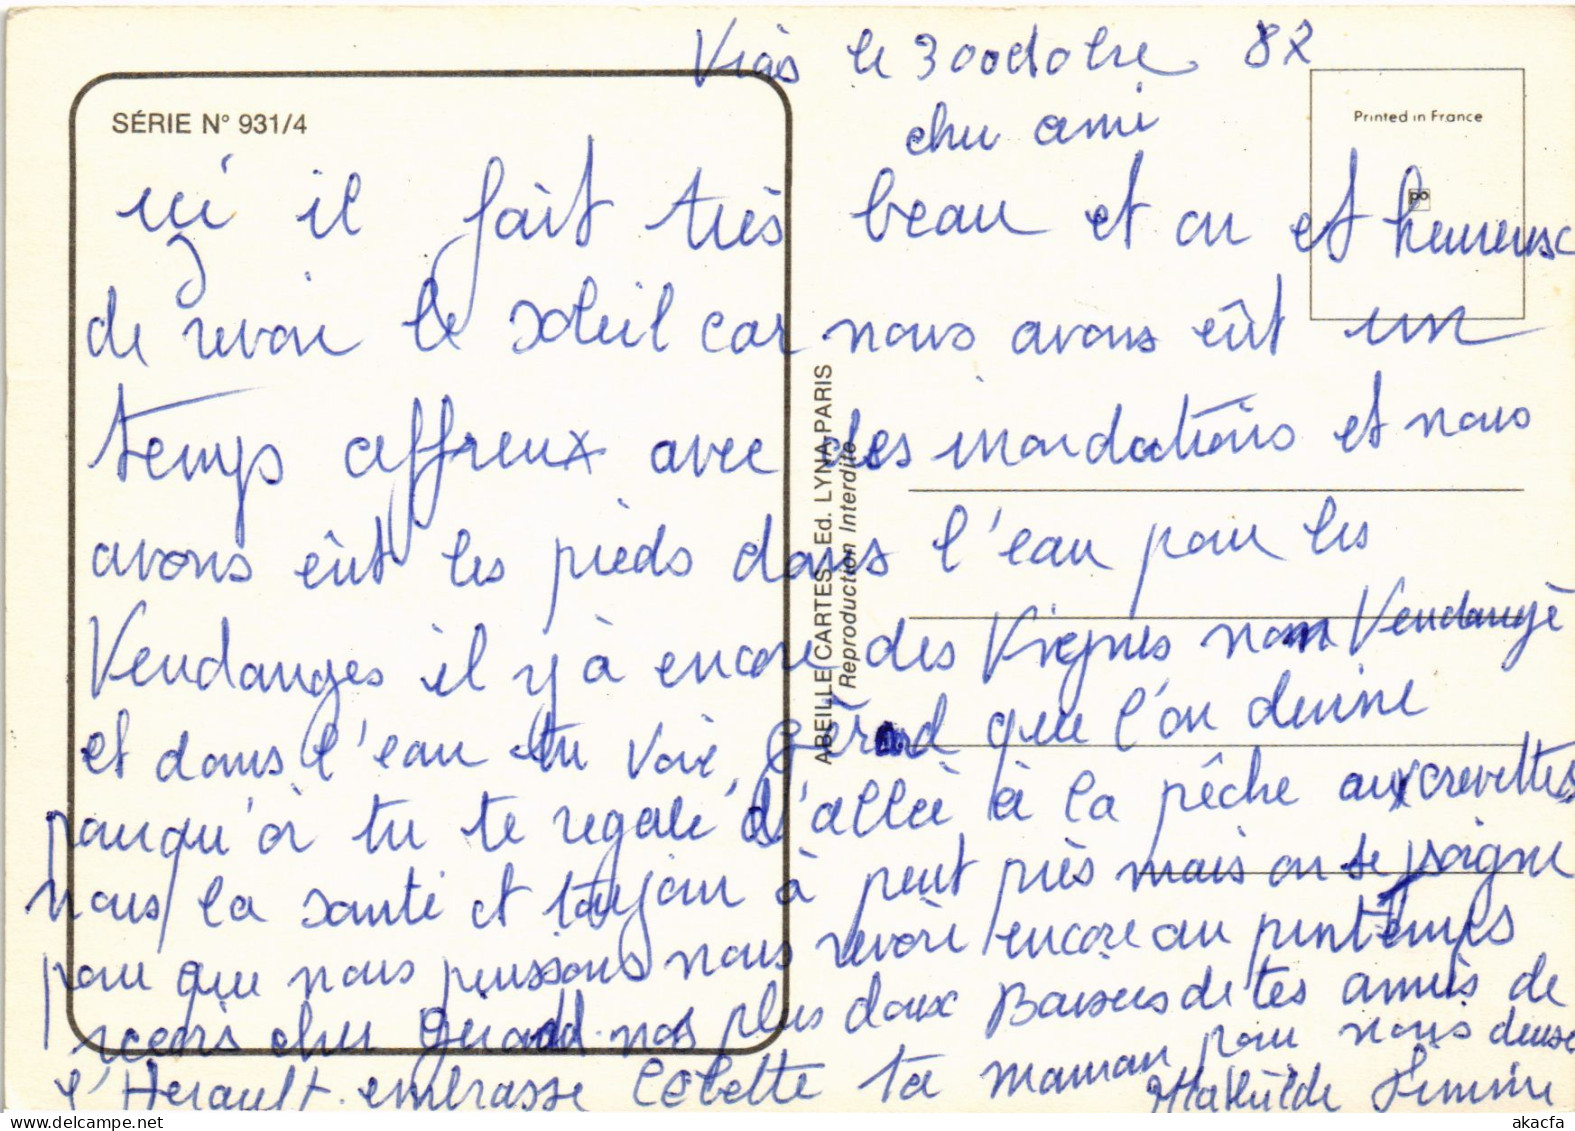 Vias le 30 octobre 82
SÉRIE N° 931/4
Printed in France
cher ami
po
ici il fait très beau et on et heureuse
de revoir le soleil car nous avons eût un
temps affreux avec des inondations et nous
avons eût les pieds dans l'eau pour les
Vendanges il y à encore des Vignes non Vendangé
et dans l'eau tu voie Gérard que l'on devine
jusqu'où tu te regale d'allée à la pêche aux crevettes
nous la santé et toujour à peut près mais on se soigne
pour que nous puissons nous revoir encore au printemps
recois cher Gérard nos plus doux Baisers de tes amies de
l'Herault. embrasse Cosette ta maman pour nous deuse
Mathilde Simone
ABEILLE CARTES Ed. LYNA-PARIS
Reproduction Interdite
akacfa
delcampe.net